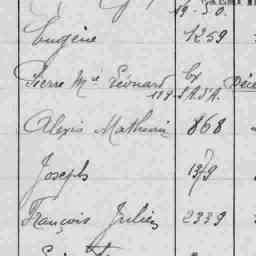 19-50.
Eugène 1259
Pierre Mie Léonard
Alexis Mathurin 868
Joseph 1379
François Julien 2339